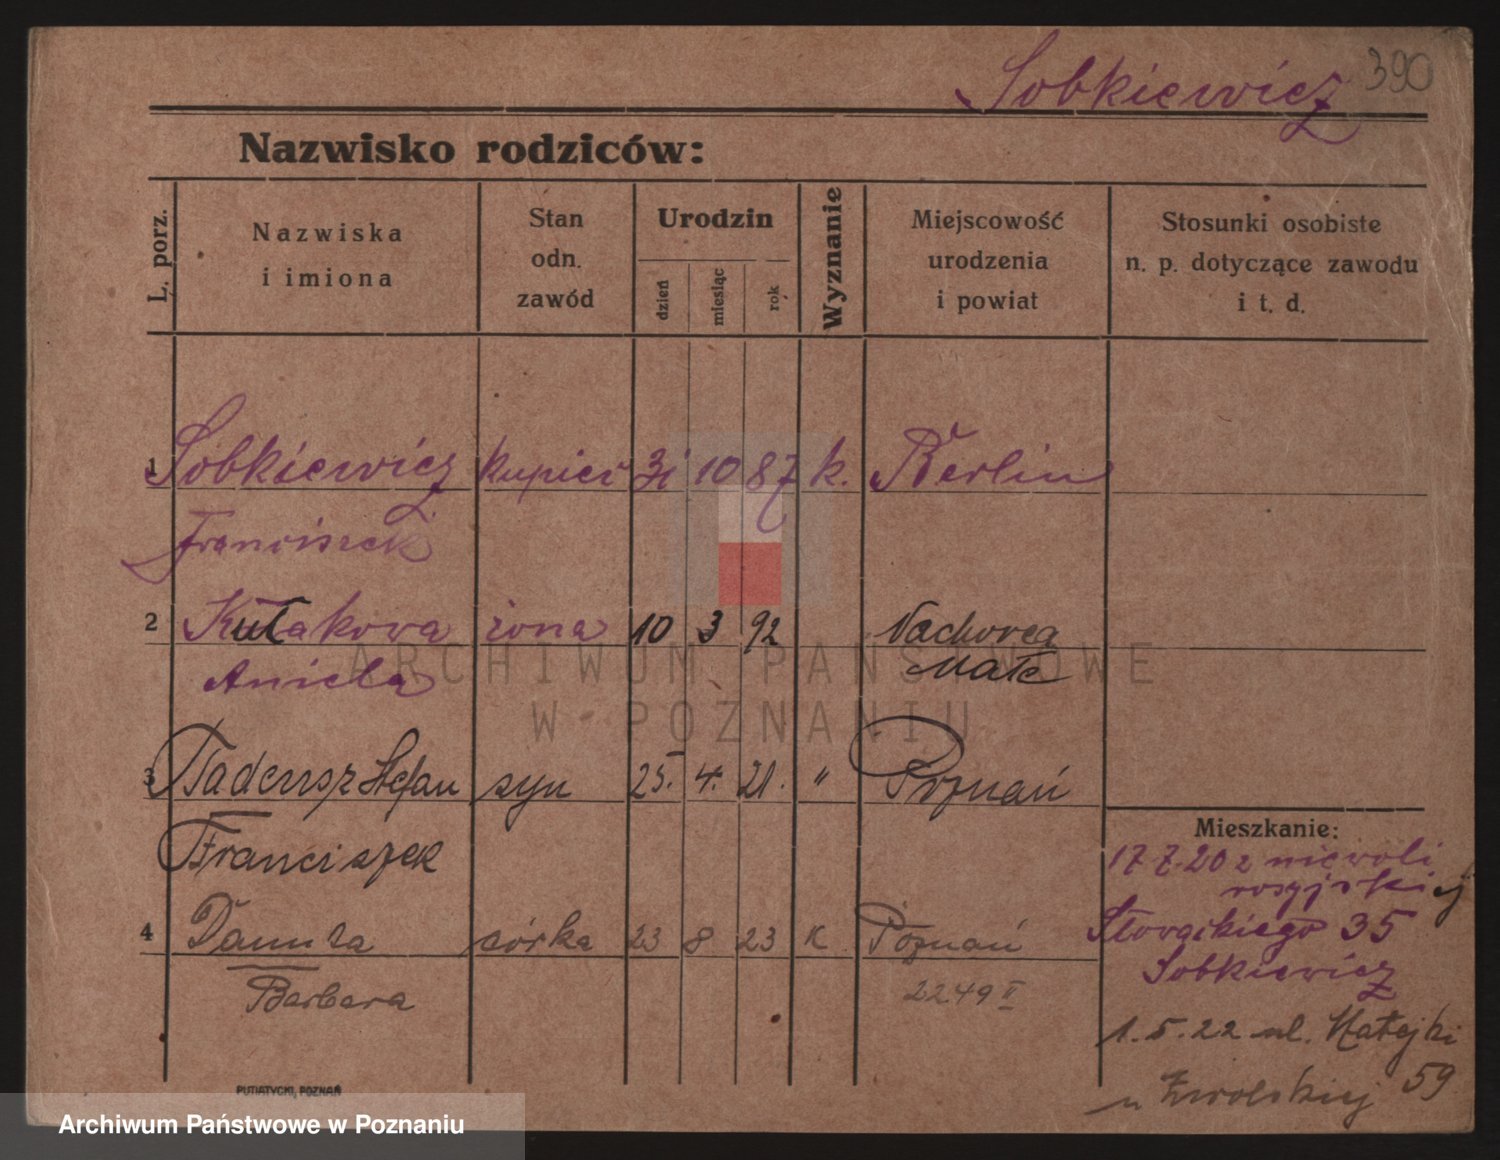 Sobkiewicz 390
Nazwisko rodziców:
L. porz.
Nazwiska
i imiona
Stan
odn.
zawód
Urodzin
dzień
miesiąc
rok
Wyznanie
Miejscowość
urodzenia
i powiat
Stosunki osobiste
n. p. dotyczące zawodu
i t. d.
1 Sobkiewicz kupiec 31 10 87 k. Berlin
Franciszek
2 Kułakowa żona 10 3 92
Aniela Małe
3 Tadeusz Stefan syn 25. 4. 21. " Poznań
Franciszek
4 Danuta córka 23 8 23 K Poznań
Barbara 2249 II
Mieszkanie:
17 7.20 z niewoli
rosyjskiej
Słowackiego 35
Sobkiewicz
1.5.22 ul. Matejki 59
u
PUTIATYCKI, POZNAŃ
ARCHIWUM PAŃSTWOWE
W POZNANIU
Archiwum Państwowe w Poznaniu